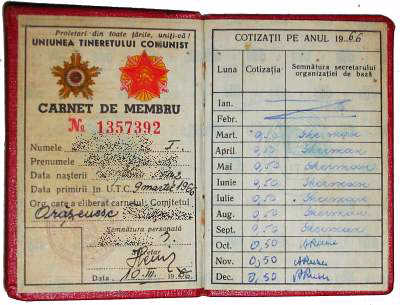 Proletari din toate țările, uniți-vă!
UNIUNEA TINERETULUI COMUNIST
CARNET DE MEMBRU
№ 1357392
Numele
Prenumele
Data nașterii
Data primirii în U.T.C. 9 martie 1966
Org. care a eliberat carnetul, Comitetul
Orășenesc
Semnătura personală
10. III. 19
COTIZAȚII PE ANUL 1966
Luna Cotizația Semnătura secretarului organizației de bază
Ian.
Febr.
Mart. 0,50
April. 0,50
Mai 0,50
Iunie 0,50
Iulie 0,50
Aug. 0,50
Sept. 0,50
Oct. 0,50
Nov. 0,50
Dec. 0,50